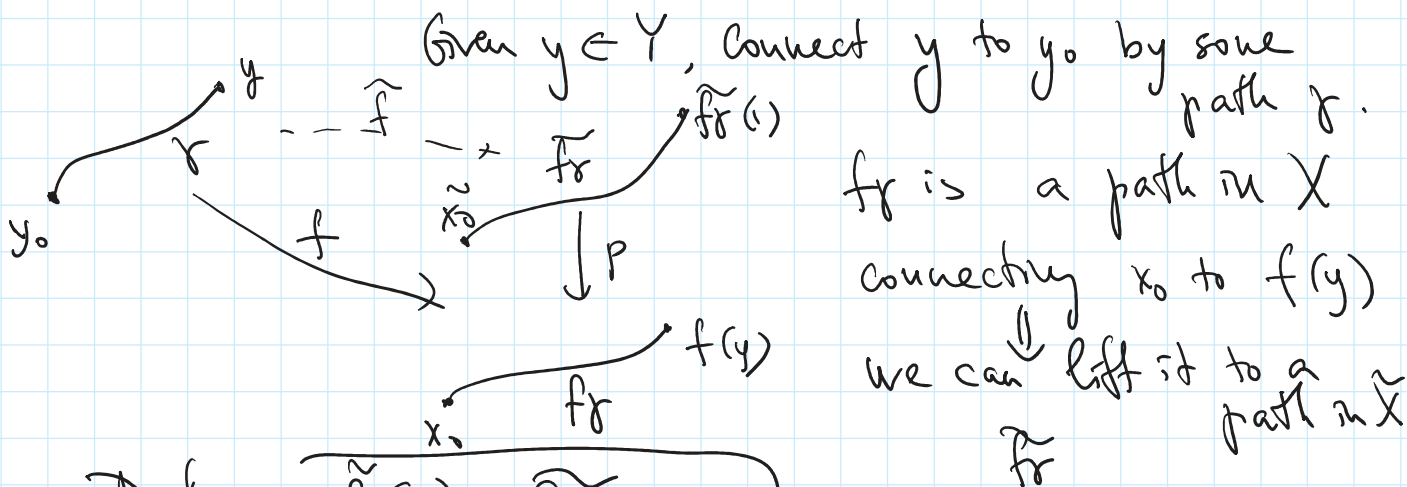 Given y ∈ Y, connect y to y₀ by some
path γ.
fγ is a path in X
connecting x₀ to f(y)
⇓
we can lift it to a
path in X̃
f̃γ
y
f̃
γ
y₀
f
f̃γ(1)
f̃γ
x̃₀
p
f(y)
fγ
x₀